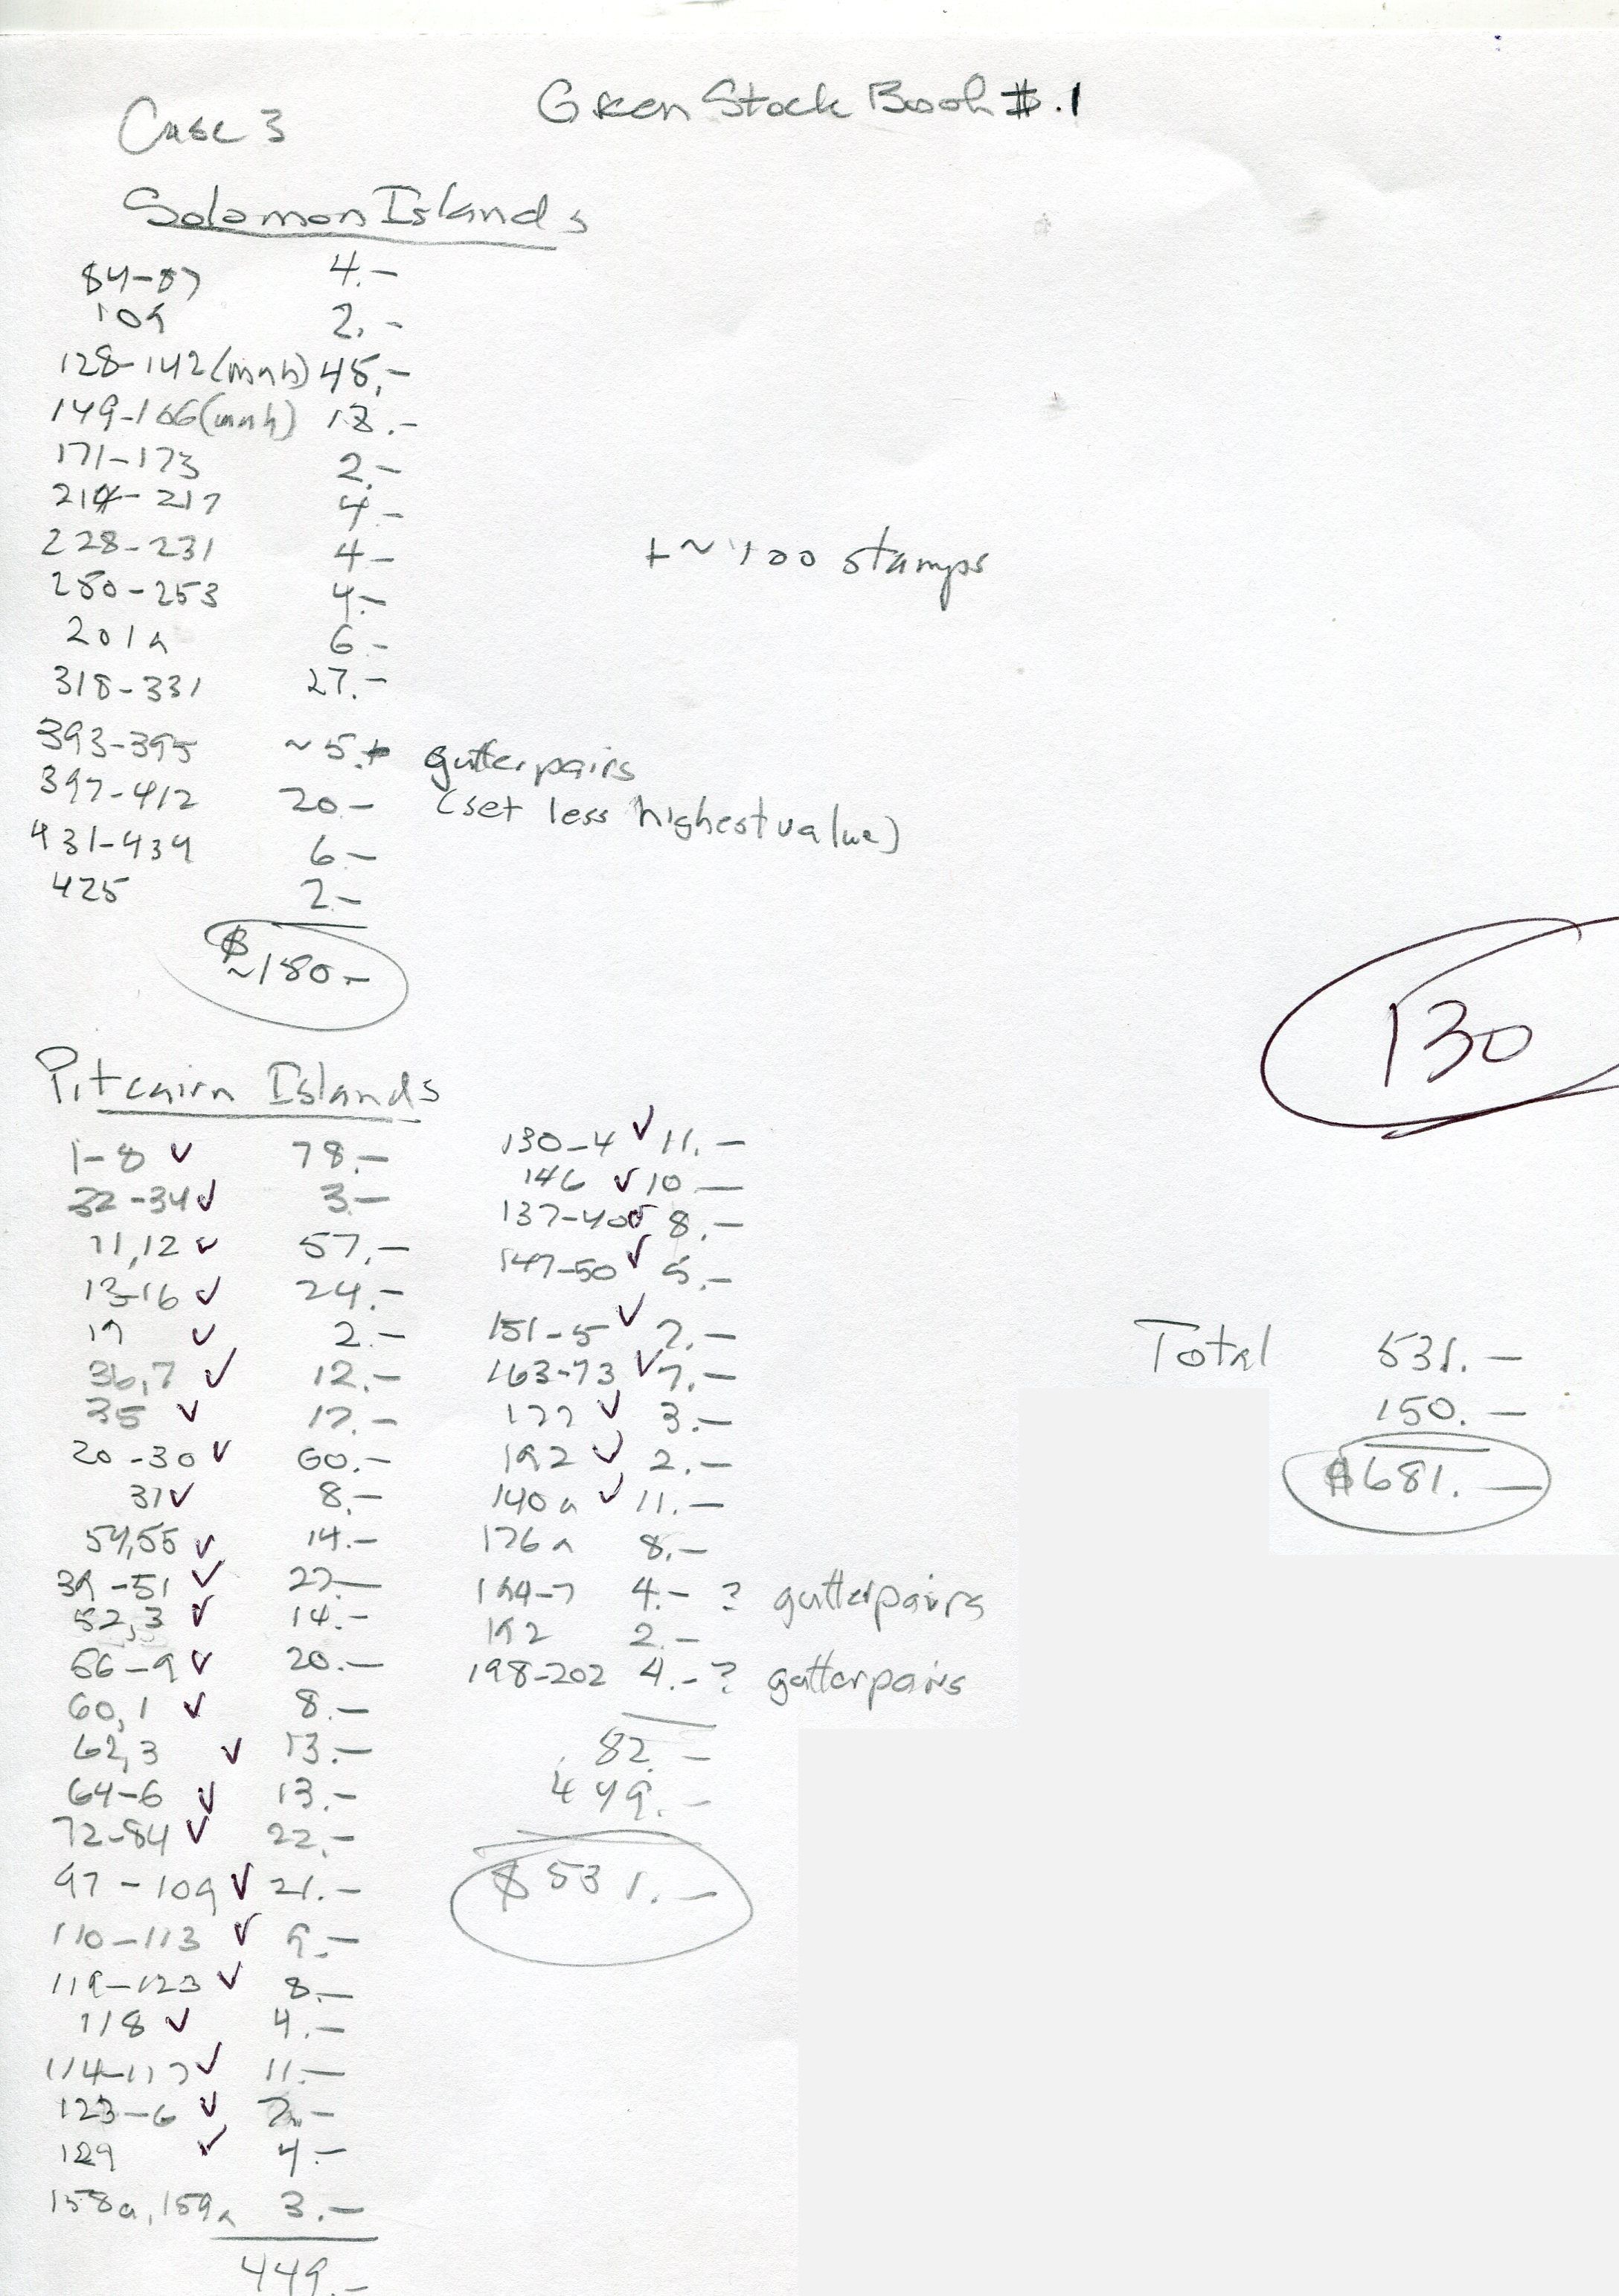 Case 3
Green Stock Book #.1
Solomon Islands
84-87 4.-
109 2.-
128-142(mnh) 45.-
149-166(mnh) 18.-
171-173 2.-
214-217 4.-
228-231 4-
250-253 4.-
201a 6-
318-331 27.-
393-395 ~5.+ gutterpairs
397-412 20- (set less highest value)
431-434 6-
425 2.-
+~100 stamps
$
~150-
130
Pitcairn Islands
1-8 ✓ 78.-
32-34 ✓ 3.-
11,12 ✓ 57.-
13-16 ✓ 24.-
19 ✓ 2.-
36,7 ✓ 12.-
35 ✓ 17.-
20-30 ✓ 60.-
31 ✓ 8.-
54,55 ✓ 14.-
39-51 ✓ 27.-
52,3 ✓ 14.-
56-9 ✓ 20.-
60,1 ✓ 8.-
62,3 ✓ 13.-
64-6 ✓ 13.-
72-84 ✓ 22.-
97-109 ✓ 21.-
110-113 ✓ 9.-
119-123 ✓ 8.-
118 ✓ 4.-
114-117 ✓ 11.-
123-6 ✓
129 ✓ 4.-
158a, 159a 3.-
449.-
130-4 ✓ 11.-
146 ✓ 10.-
137-40 ✓ 8.-
147-50 ✓ 5.-
151-5 ✓ 2.-
163-73 ✓ 7.-
177 ✓ 3.-
192 ✓ 2.-
140a ✓ 11.-
176a 8.-
194-7 4.- ? gutterpairs
192 2.-
198-202 4.-? gutterpairs
82.-
449.-
$531.-
Total 531.-
150.-
$681.-